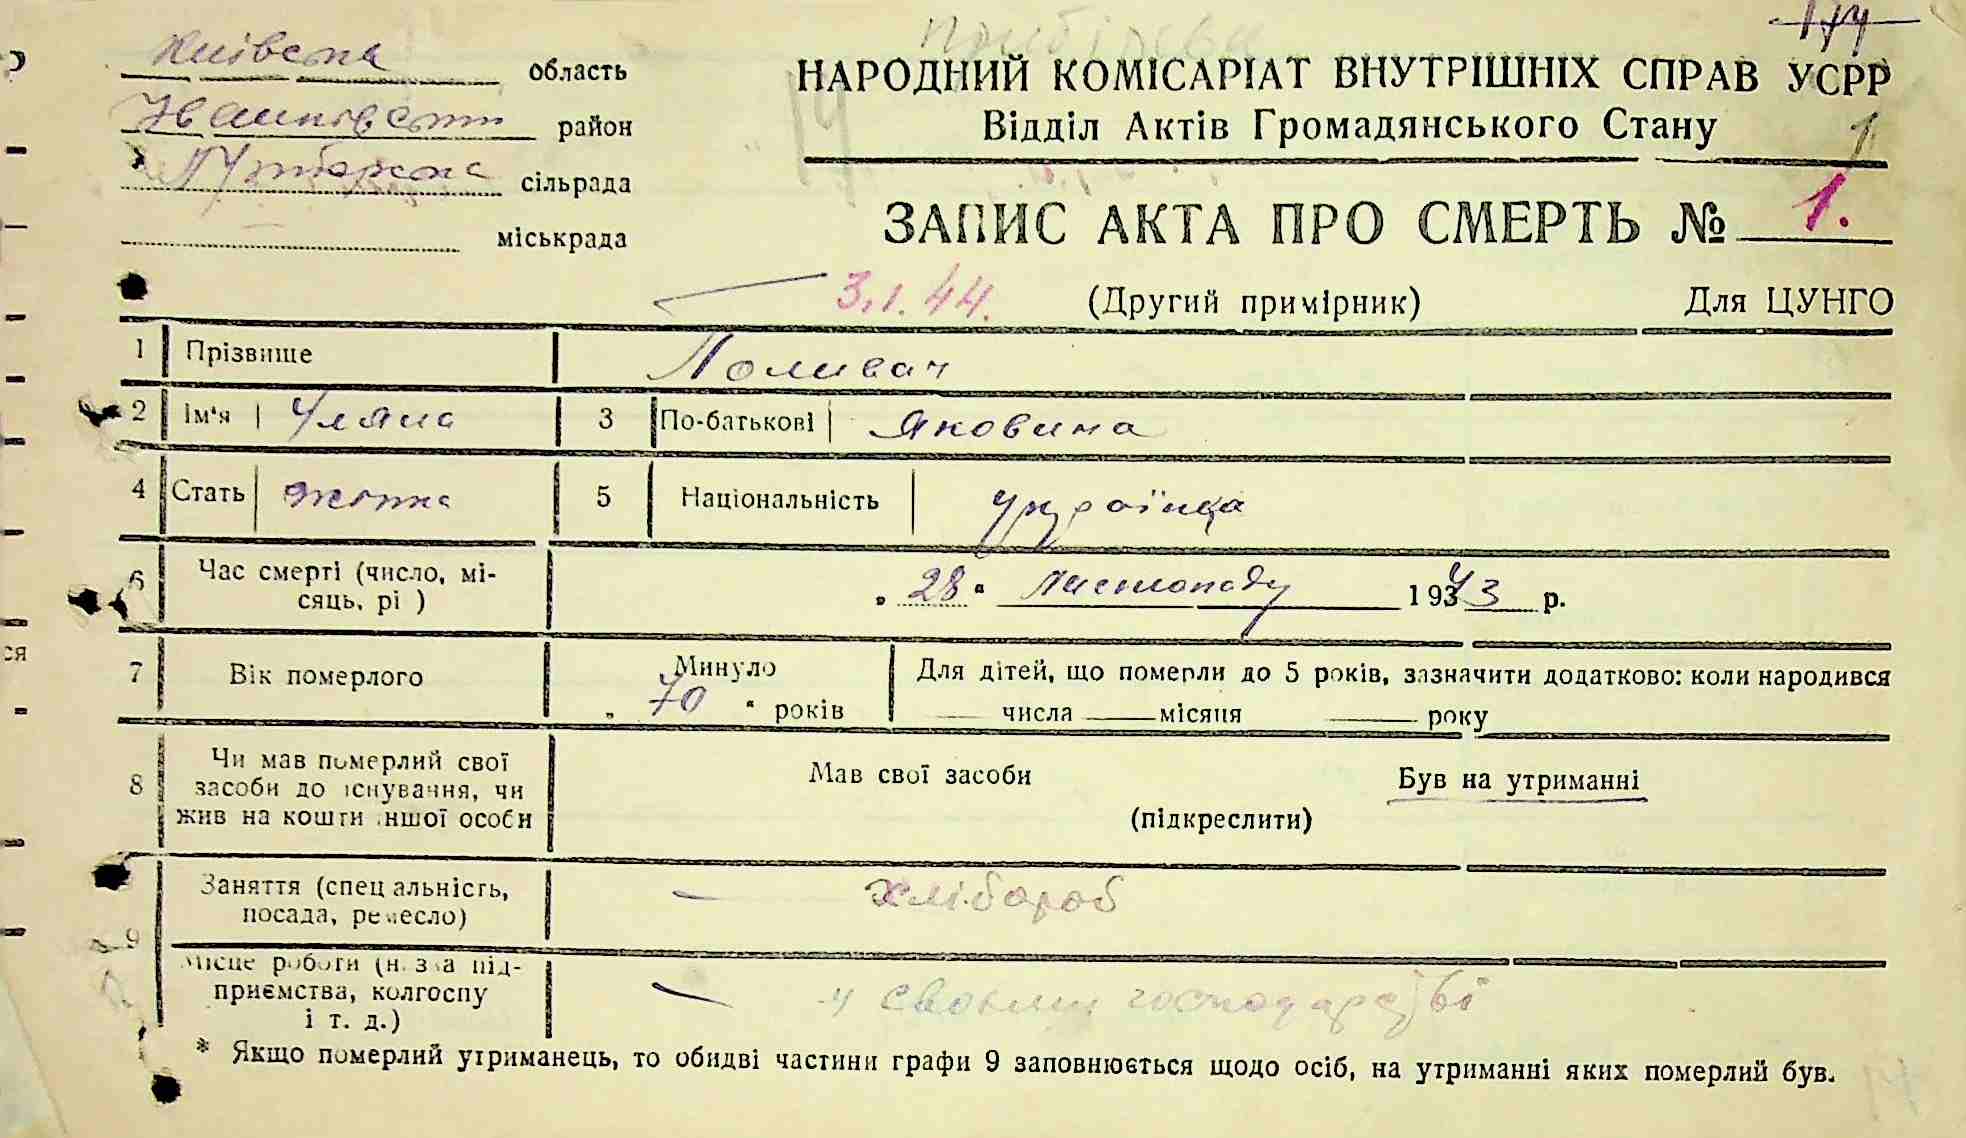 Київська область
Іванківський район
сільрада
міськрада
НАРОДНИЙ КОМІСАРІАТ ВНУТРІШНІХ СПРАВ УСРР
Відділ Актів Громадянського Стану
1
ЗАПИС АКТА ПРО СМЕРТЬ № 1.
3.1.44.
(Другий примірник) Для ЦУНГО
1 Прізвище Поливач
2 Ім'я Уляна 3 По-батькові Яковина
4 Стать жінка 5 Національність українка
6 Час смерті (число, мі-
сяць, рі ) „ 28 " Листопаду 1943 р.
7 Вік померлого Минуло 70 років
Для дітей, що померли до 5 років, зазначити додатково: коли народився
числа місяця року
8 Чи мав померлий свої
засоби до існування, чи
жив на кошти іншої особи
Мав свої засоби Був на утриманні
(підкреслити)
9 Заняття (спец альність,
посада, ремесло) — хлібороб
Місце роботи (назва під-
приємства, колгоспу
і т. д.) — у своєму господарстві
* Якщо померлий утриманець, то обидві частини графи 9 заповнюється щодо осіб, на утриманні яких померлий був.